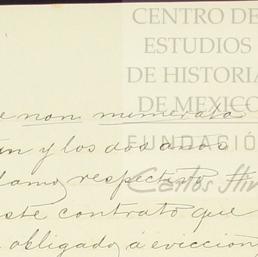 CENTRO DE
ESTUDIOS
DE HISTORIA
DE MEXICO
FUNDACIÓ
Carlos
e non numerata
y los dos anos
lamo, respectivo
ste contrato que
obligado á eviccion